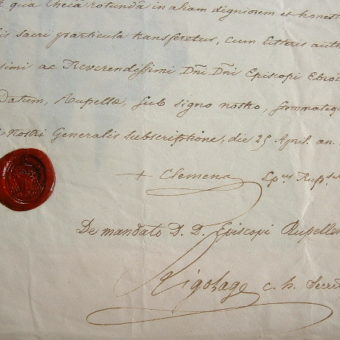 qua theca rotunda in aliam digniorem et hones
is sacri particula transfertur, cum litteris auth
simi ac Reverendissimi Dñi Dñi Episcopi Ebroi
Datum, Rupellæ, sub signo nostro,
nostri Generalis subscriptione, die 25 April. an
+ Clemens Epus Rup
De mandato D. D. Episcopi Rupellen
Rigolage c. h. Secre